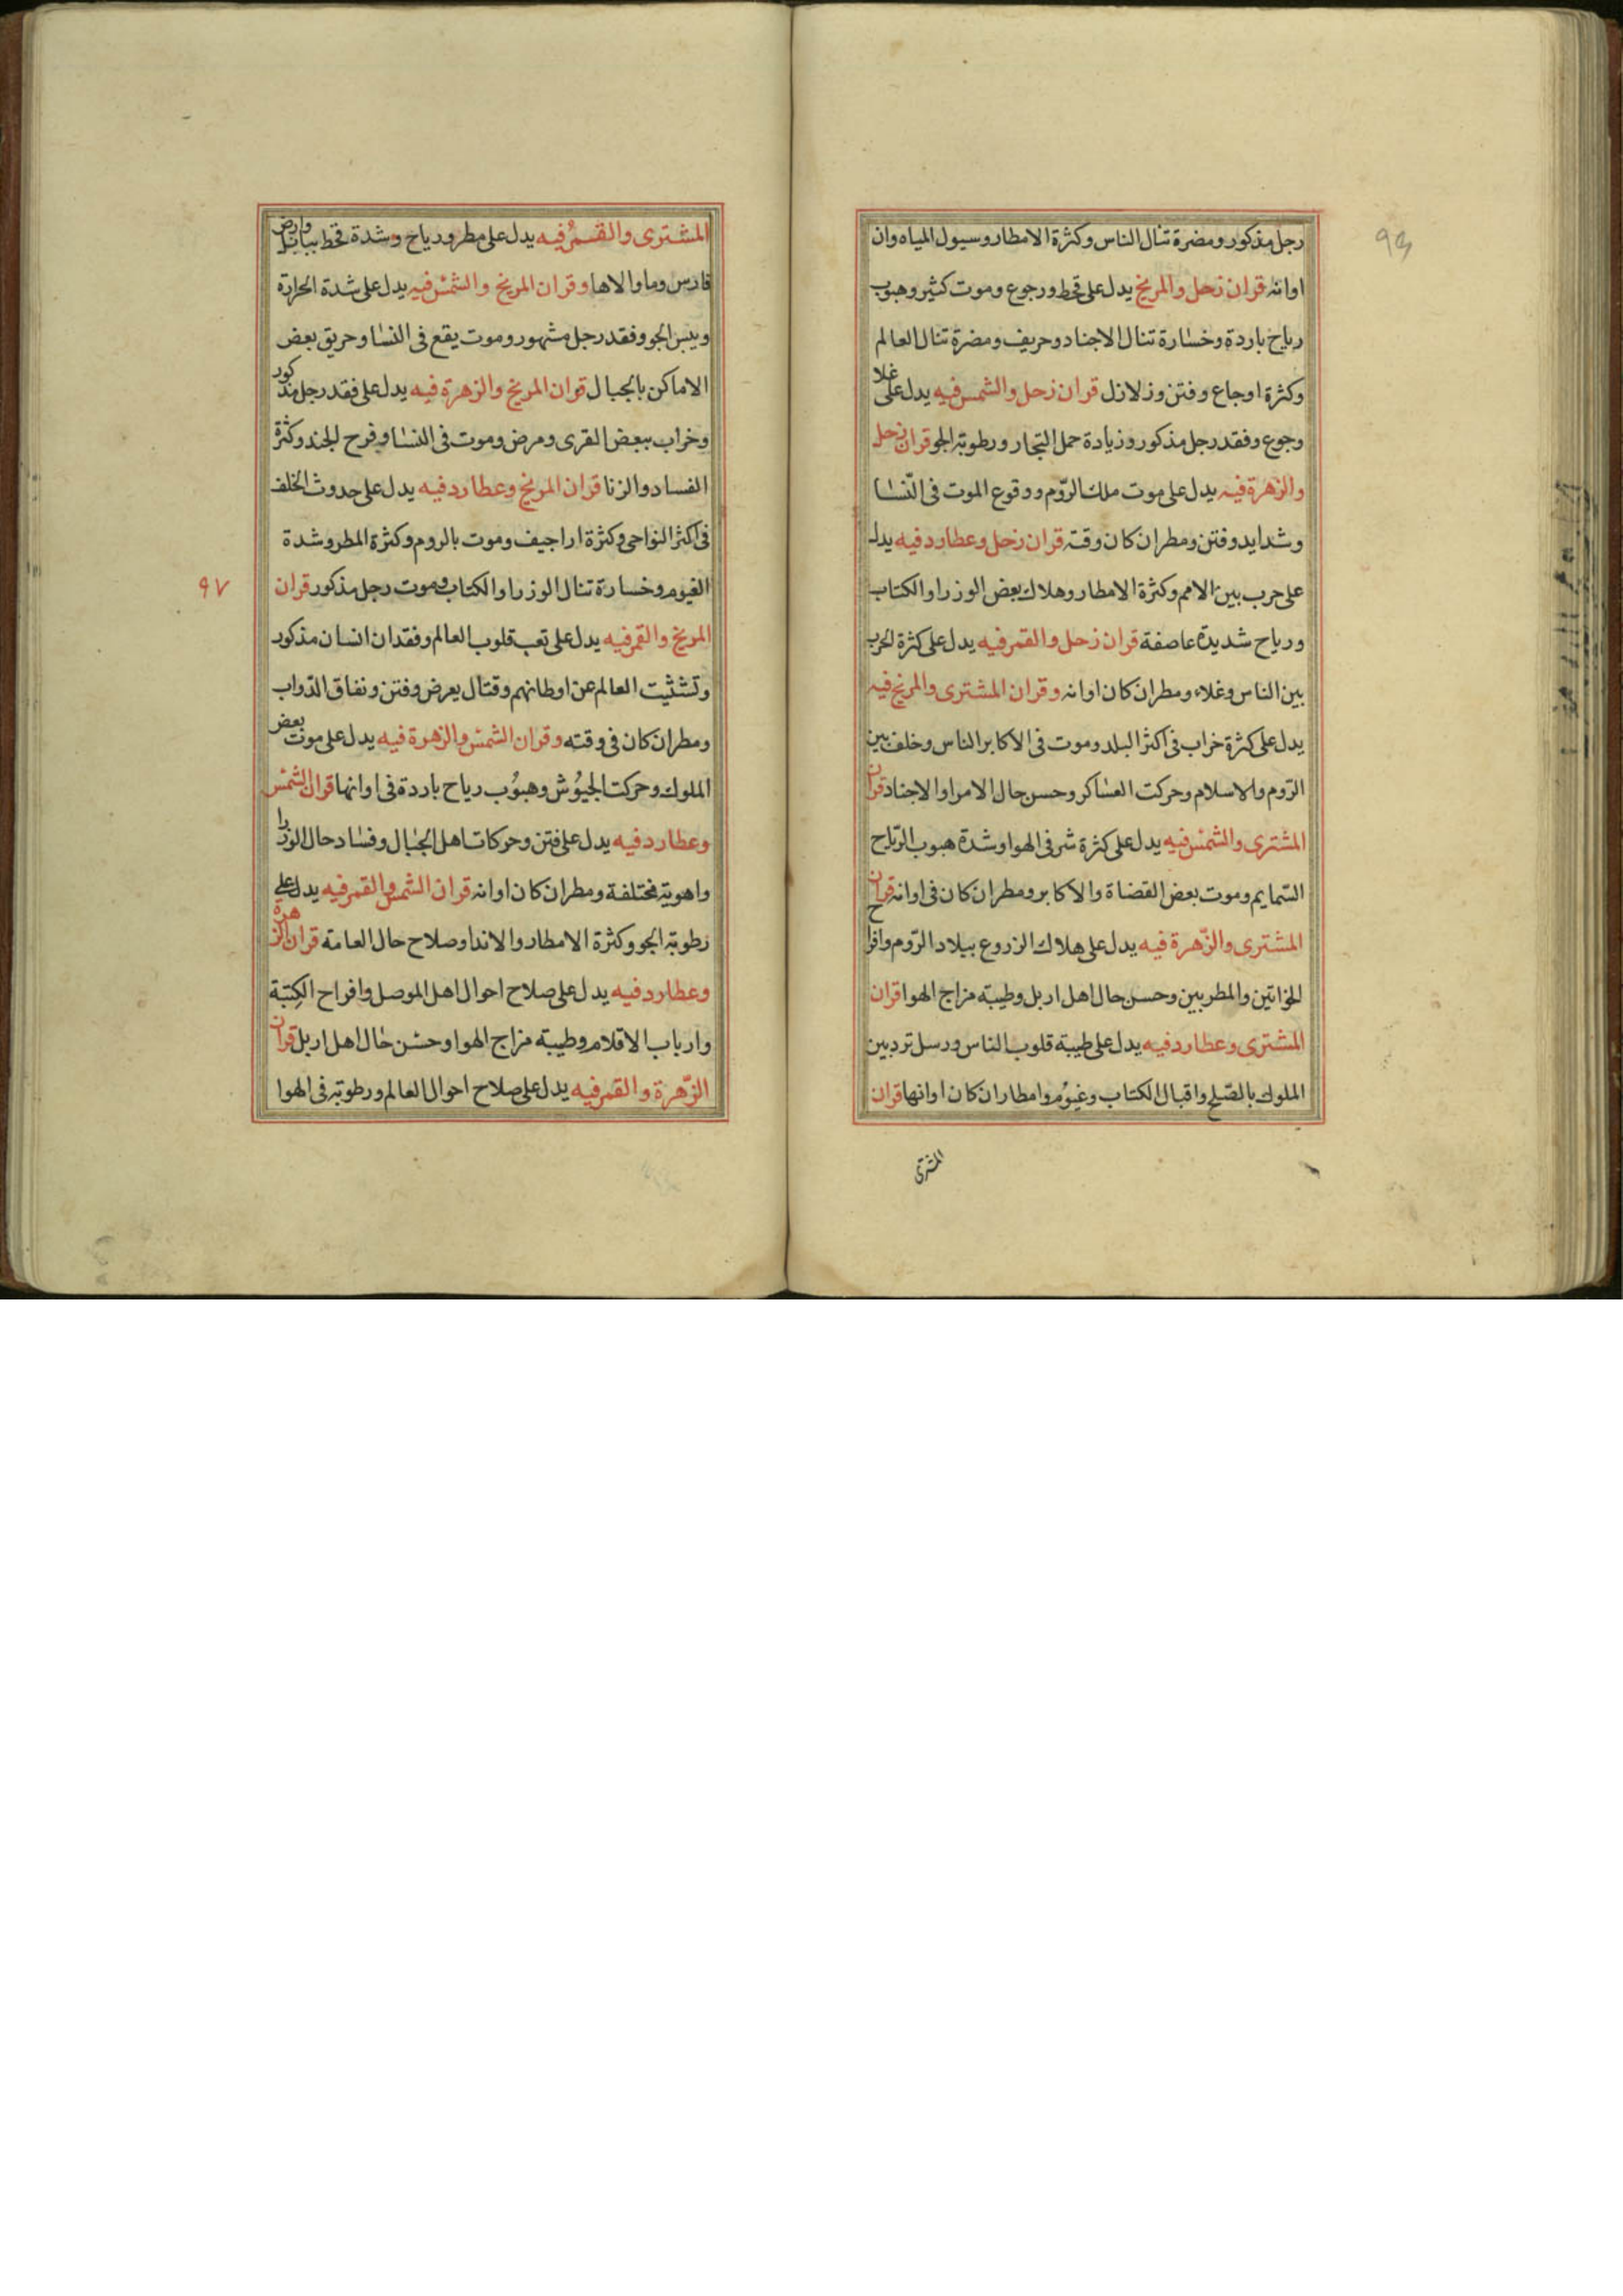 رجل مذكور ومضرة تنال الناس وكثرة الامطار وسيول المياه وان
اوانه قران زحل والمريخ يدل على قحط ورجوع وموت كثير وهبوب
رياح باردة وخسارة تنال الاجناد وحريف ومضرة تنال العالم
وكثرة اوجاع وفتن وزلازل قران زحل والشمس فيه يدل على غلا
وجوع وفقد رجل مذكور وزيادة حمل التجار ورطوبة الجو قران زحل
والزهرة فيه يدل على موت ملك الروم ووقوع الموت فى النّسا
وشدايد وفتن ومطر ان كان وقته قران زحل وعطارد فيه يدل
على حرب بين الامم وكثرة الامطار وهلاك بعض الوزرا والكتاب
ورياح شديدة عاصفة قران زحل والقمر فيه يدل على كثرة الحرب
بين الناس وغلاء ومطر ان كان اوانه وقران المشترى والمريخ فيه
يدل على كثرة خراب فى اكثر البلد وموت فى الاكابر الناس وخلف بين
الرّوم والاسلام وحركت العساكر وحسن حال الامرا والاجناد قران
المشترى والشمس فيه يدل على كثرة شر فى الهوا وشدة هبوب الرّياح
السّمايم وموت بعض القضاة والاكابر ومطر ان كان فى اوانه قران
المشترى والزّهرة فيه يدل على هلاك الزروع ببلاد الرّوم وافراح
الخواتين والمطربين وحسن حال اهل اربل وطيبة مزاج الهوا قران
المشترى وعطارد فيه يدل على طيبة قلوب الناس ورسل ترد بين
الملوك بالصّلح واقبال الكتاب وغيوم وامطار ان كان اوانها قران
المشترى
المشترى والقمر فيه يدل على مطر ورياح وشدة قحط ببابل وارض
فارس وما والاها وقران المريخ والشمس فيه يدل على شدة الحرارة
ويبس الجو وفقد رجل مشهور وموت يقع فى النسا وحريق بعض
الاماكن بالجبال قران المريخ والزهرة فيه يدل على فقد رجل مذكور
وخراب ببعض القرى ومرض وموت فى النسا وفرح الجند وكثرة
الفساد والزنا قران المريخ وعطارد فيه يدل على حدوث الخلف
فى اكثر النواحى وكثرة اراجيف وموت بالروم وكثرة المطر وشدة
الغيوم وخسارة تنال الوزرا والكتاب وموت رجل مذكور قران
٩٧
المريخ والقمر فيه يدل على تعب قلوب العالم وفقدان انسان مذكور
وتشثيت العالم عن اوطانهم وقتال يعرض وفتن ونفاق الدّواب
ومطر ان كان فى وقته وقران الشمس والزهرة فيه يدل على موت بعض
الملوك وحركت الجيوُش وهبوُب رياح باردة فى اوانها قران الشمس
وعطارد فيه يدل على فتن وحركات اهل الجبال وفساد حال الوزرا
واهوية مختلفة ومطر ان كان اوانه قران الشمس والقمر فيه يدل على
رطوبة الجو وكثرة الامطار والاندا وصلاح حال العامة قران الزهرة
وعطارد فيه يدل على صلاح احوال اهل الموصل وافراح الكتبة
وارباب الاقلام وطيبة مزاج الهوا وحسن حال اهل اربل قران
الزّهرة والقمر فيه يدل على صلاح احوال العالم ورطوبة فى الهوا